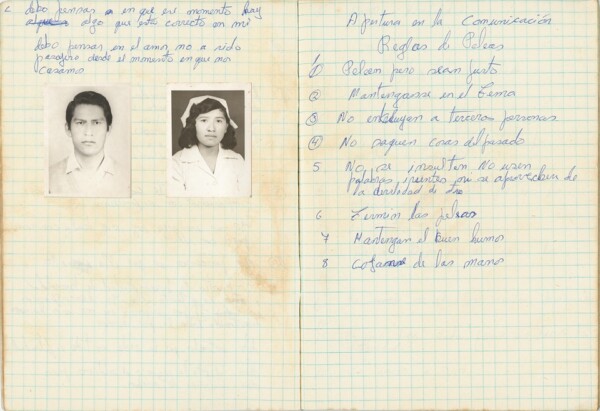 2 debo pensar en que ese momento hay
algo que está correcto en mi
debo pensar en el amor, no a sido
pasajero desde el momento en que nos
casamos
Apertura en la Comunicación
Reglas de Peleas
1 Peleen pero sean justo
2 Mantengasse en el Tema
3 No incluyan a terceras personas
4 No saquen cosas del pasado
5 No se insultan No usen
palabras, ni se aprovechen de
la devilidad de
6 Terminen las peleas
7 Mantengan el Buen humor
8 de las manos